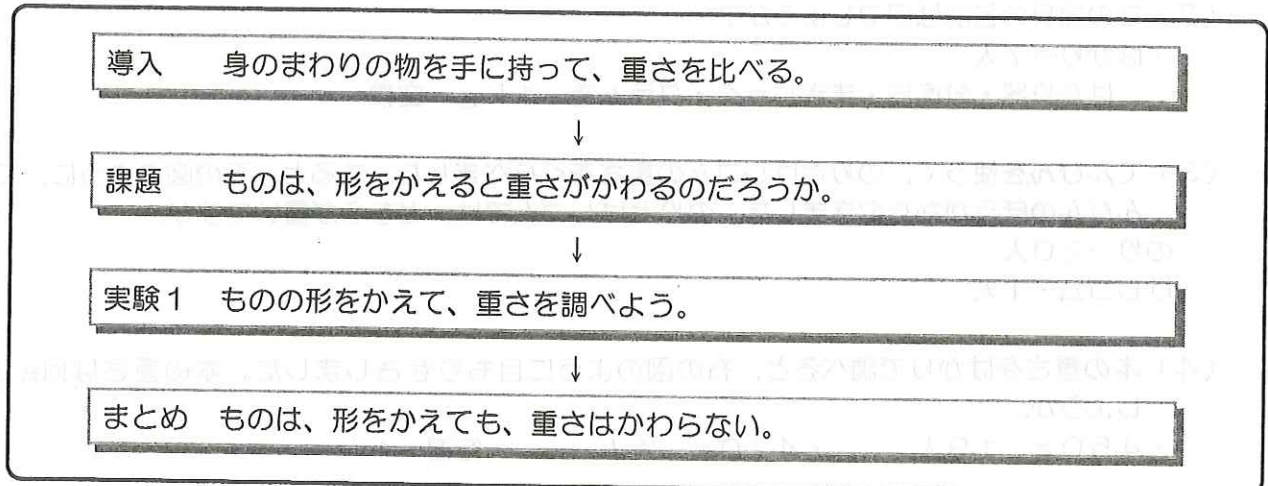 導入　身のまわりの物を手に持って、重さを比べる。
↓
課題　ものは、形をかえると重さがかわるのだろうか。
↓
実験１　ものの形をかえて、重さを調べよう。
↓
まとめ　ものは、形をかえても、重さはかわらない。